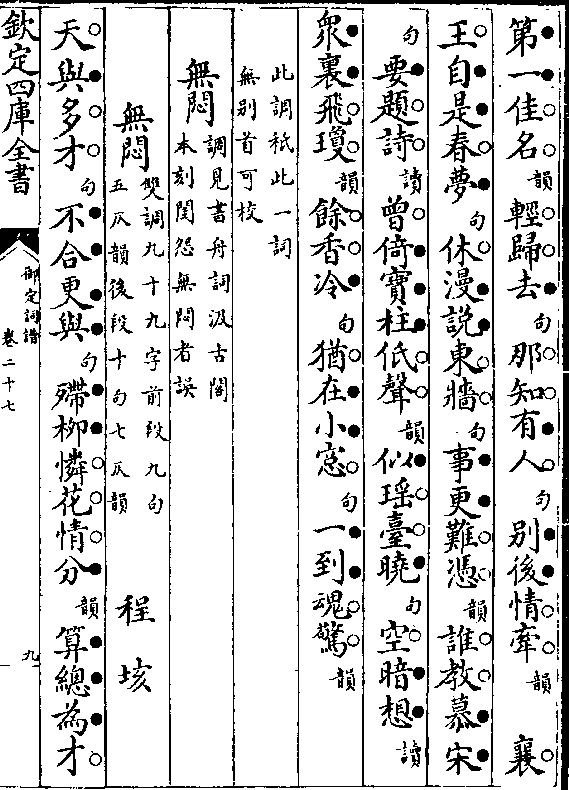 第一佳名韻輕歸去句那知有人句别後情牽韻襄
王自是春夢句休漫說東牆句事更難憑韻誰教慕宋
句要題詩讀曾倚寶柱低聲韻似瑶臺曉句空暗想讀
衆裏飛瓊韻餘香冷句猶在小窓句一到魂驚韻
此調秖此一詞
無别首可校
無悶調見書舟詞汲古閣
本刻閨怨無悶者誤
無悶雙調九十九字前段九句
五仄韻後段十句七仄韻程垓
天與多才句不合更與句殢柳憐花情分韻算總為才
欽定四庫全書
御定詞譜
卷二十七
九